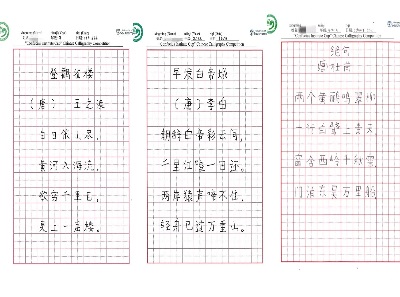 "Confucius Institute Cup" Chinese Calligraphy Competition
登鹳雀楼
（唐）王之涣
白日依山尽，
黄河入海流，
欲穷千里目，
更上一层楼。
"Confucius Institute Cup" Chinese Calligraphy Competition
早发白帝城
（唐）李白
朝辞白帝彩云间，
千里江陵一日还。
两岸猿声啼不住，
轻舟已过万重山。
"Confucius Institute Cup" Chinese Calligraphy Competition
绝句
唐 杜甫
两个黄鹂鸣翠柳
一行白鹭上青天
窗含西岭千秋雪
门泊东吴万里船